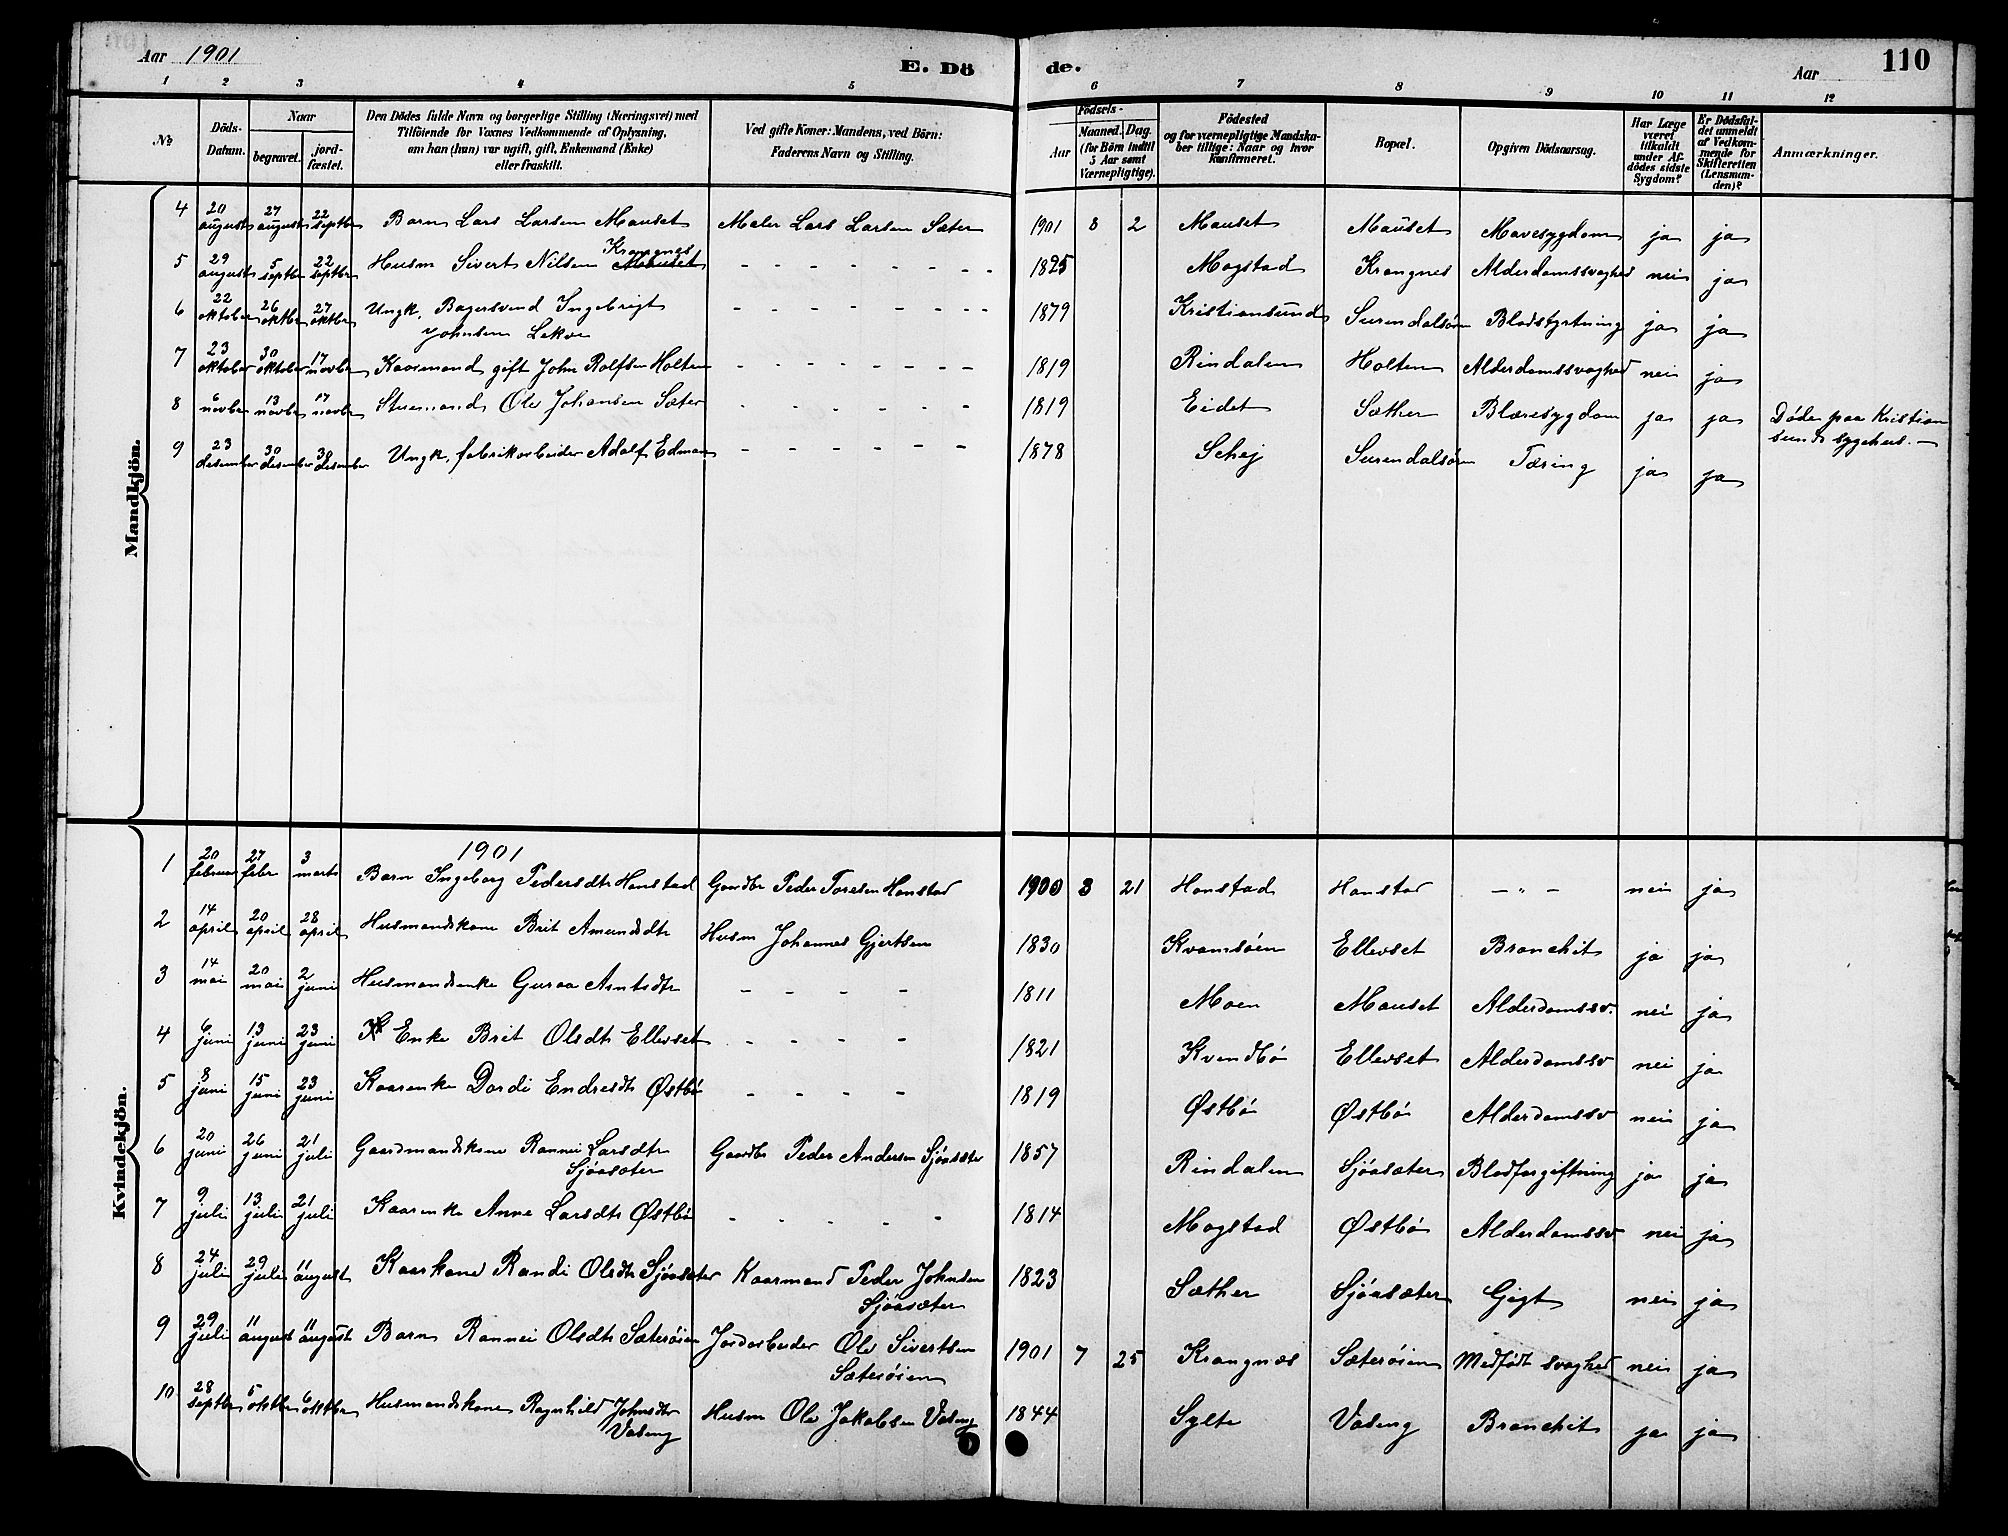 Aar 1901
E. Dö de.
Aar
110
1 2 3 4 5 6 7 8 9 10 11 12
No
Döds-Datum.
Naar
begravet.
jord-fæstet.
Den Dödes fulde Navn og borgerlige Stilling (Næringsvei) med
Tilföiende for Voxnes Vedkommende af Oplysning,
om han (hun) var ugift, gift, Enkemand (Enke)
eller fraskilt.
Ved gifte Koner: Mandens, ved Börn:
Faderens Navn og Stilling.
Födsels-
Aar
Maaned. Dag.
(for Börn indtil
5 Aar samt
Værnepligtige).
Födested
og for værnepligtige Mandska-
ber tillige: Naar og hvor
konfirmeret.
Bopæl.
Opgiven Dödsaarsag.
Har Læge
været
tilkaldt
under Af-
dödes sidste
Sygdom?
Er Dödsfal-
det anmeldt
af Vedkom-
mende for
Skifteretten
(Lensman-
den)?
Anmærkninger.
Mandkjön.
4 20 august 27 august 22 septbr Barn Lars Larsen Mauset Maler Lars Larsen Sæter 1901 8 2 Mauset Mauset Mavesygdom ja ja
5 29 august 5 septbr 22 septbr Husm Sivert Nilsen Krangnes Mauset - - - - - - - - 1825 Mogstad Krangnes Alderdomssvaghed nei ja
6 22 oktober 26 oktbr 27 oktbr Ungk. Bagersvend Ingebrigt - - - - - - - - 1879 Kristiansund Surendalsören Blodstyrtning ja ja
Johnsen Lekve
7 23 oktober 30 oktober 17 novbr Kaarmand gift John Rolfsen Holten - - - - - - - - 1819 Rindalen Holten Alderdomssvaghed nei ja
8 6 novbr 13 novbr 17 novbr Stuemand Ole Johansen Sæter - - - - - - 1819 Eidet Sæther Blæresygdom ja ja Döde paa Kristian
sunds sygehus.
9 23 desember 30 desember 30 desember Ungk. fabrikarbeider Adolf Edman - - - - - - 1878 Schej Surendalsören Tæring ja ja
Kvindekjön.
1901
1 20 februar 27 febr 3 marts Barn Ingeborg Pedersdtr Honstad Gaardbr Peder Toresen Honstad 1900 3 21 Honstad Honstad - " - nei ja
2 14 april 20 april 28 april Husmandskone Brit Amundsdtr Husm Johannes Gjertsen 1830 Kvamsöen Ellevset Bronchit ja ja
3 14 mai 20 mai 2 juni Husmandsenke Guroa Arntsdtr - - - - 1811 Moen Mauset Alderdomssv. nei ja
4 6 juni 13 juni 23 juni Enke Brit Olsdtr Ellevset - - - - 1821 Kvendbö Ellevset Alderdomssv nei ja
5 8 juni 15 juni 23 juni Kaarenke Dordi Endresdtr Østbö - - - - 1819 Østbö Østbö Alderdomssv nei ja
6 20 juni 26 juni 21 juli Gaardmandskone Rannei Larsdtr Gaardbr Peder Andersen Sjöasæter 1857 Rindalen Sjöasæter Blodforgiftning ja ja
Sjöasæter
7 9 juli 13 juli 21 juli Kaarenke Anne Larsdtr Østbö - - - - - 1814 Mogstad Østbö Alderdomssv nei ja
8 24 juli 29 juli 11 august Kaarkone Randi Olsdtr Sjöasæter Kaarmand Peder Johnsen 1823 Sæther Sjöasæter Gigt nei ja
Sjöasæter
9 29 juli 11 august 11 august Barn Rannei Olsdtr Sæteröien Jordarbeider Ole Sivertsen 1901 7 25 Krangnæs Sæteröien Medfødt svaghed nei ja
Sæteröien
10 28 septbr 5 oktbr 6 oktbr Husmandskone Ragnhild Johnsdtr Husm Ole Jakobsen Vaseng 1844 Sylte Vaseng Bronchit ja ja
Vaseng